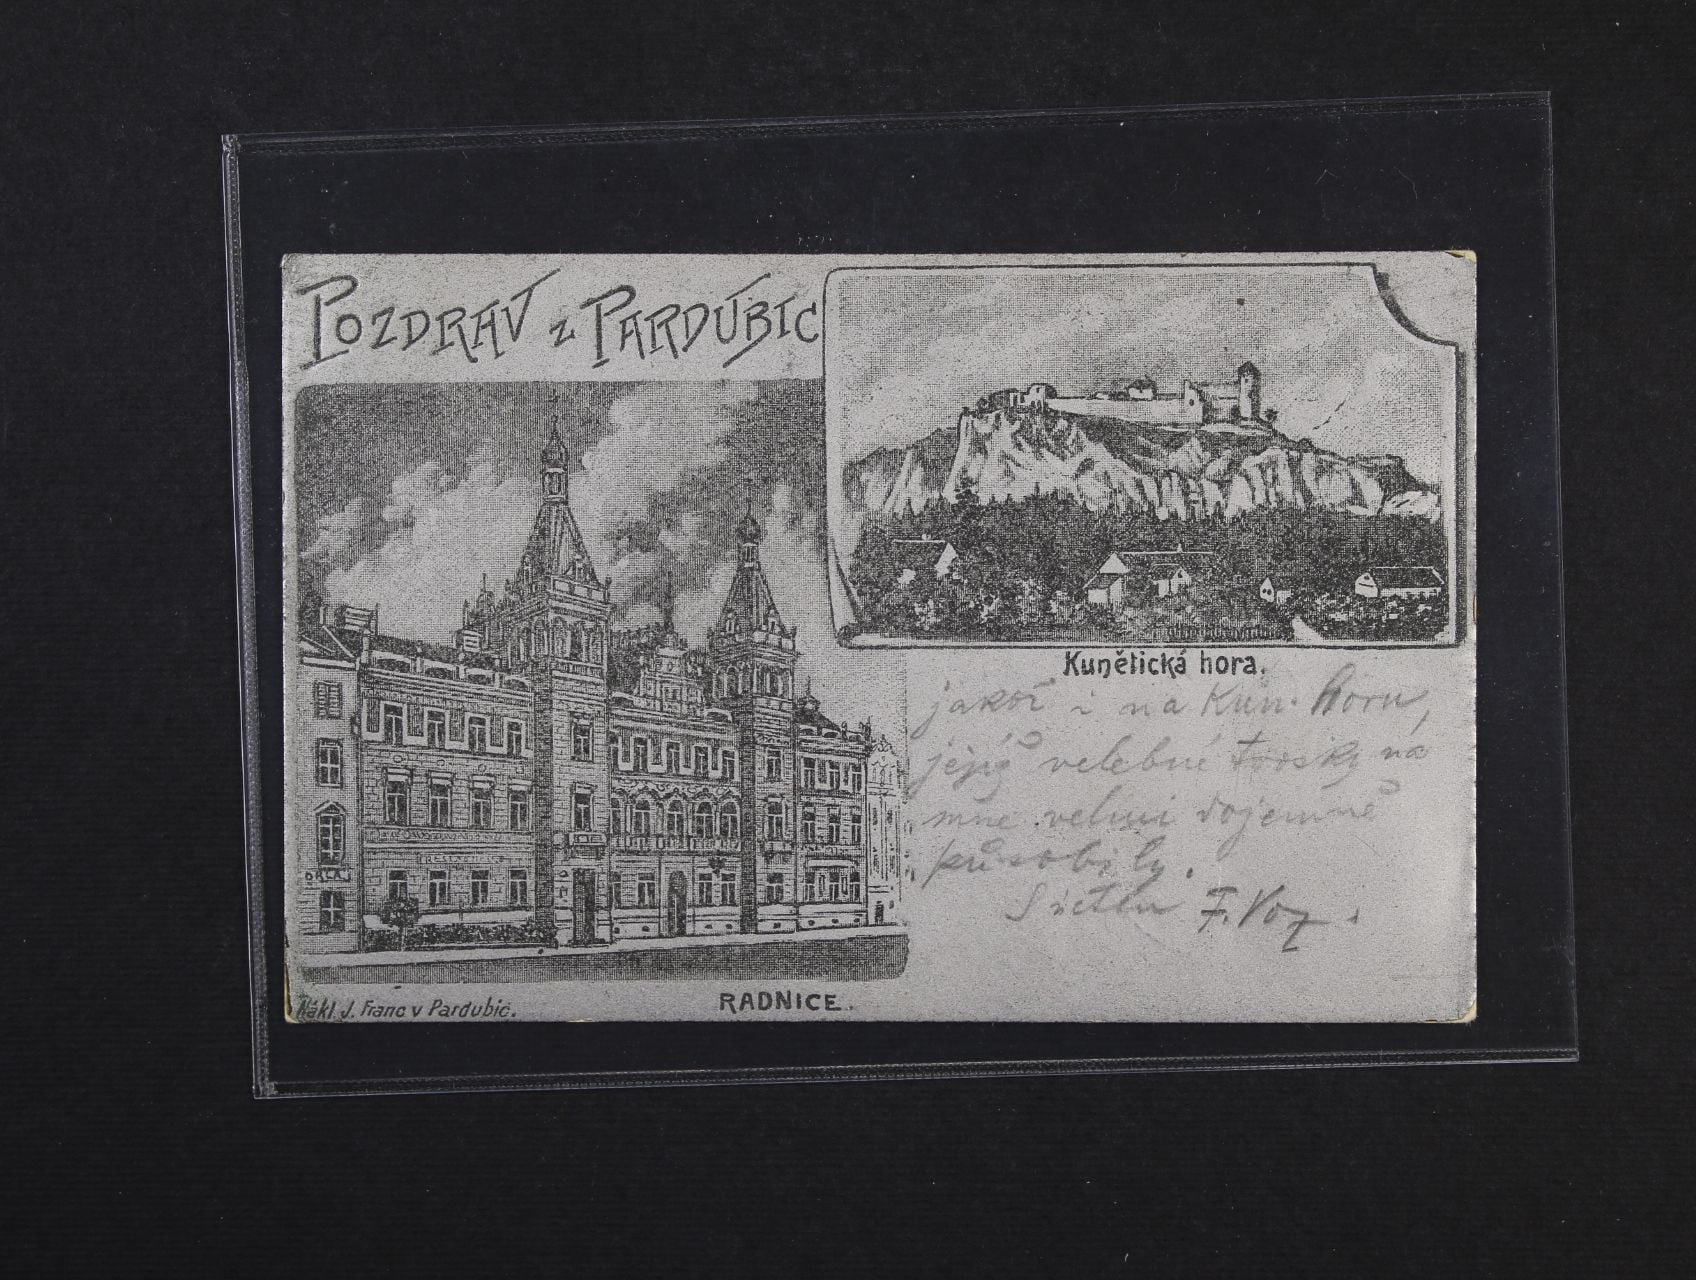 POZDRAV z PARDUBIC
Kunětická hora.
jakož i na Kun. horu,
jejíž velebné trosky na
mne velmi dojemně
působily.
F. Voz
RADNICE.
Nákl. J. Franc v Pardubic.